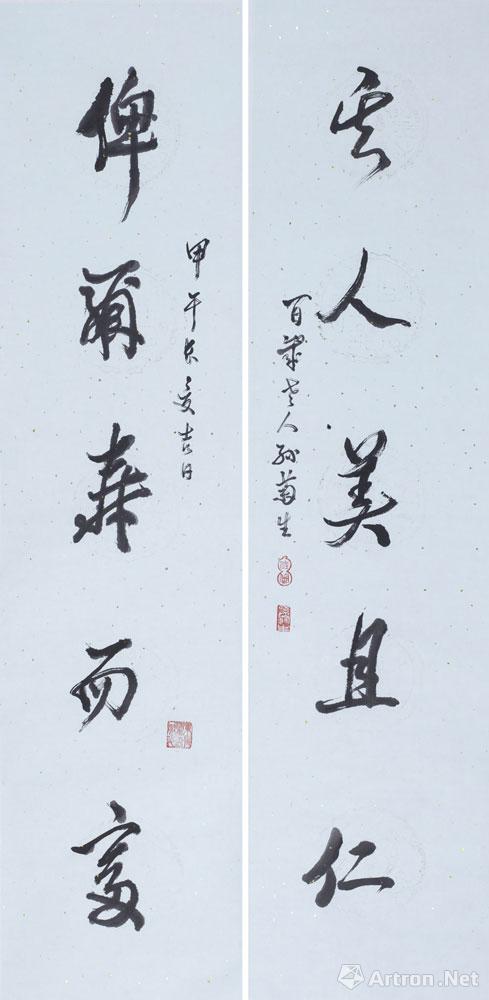 其人美且仁
百歲老人孫菊生
甲午長夏吉日
俾爾壽而富
Artron.Net